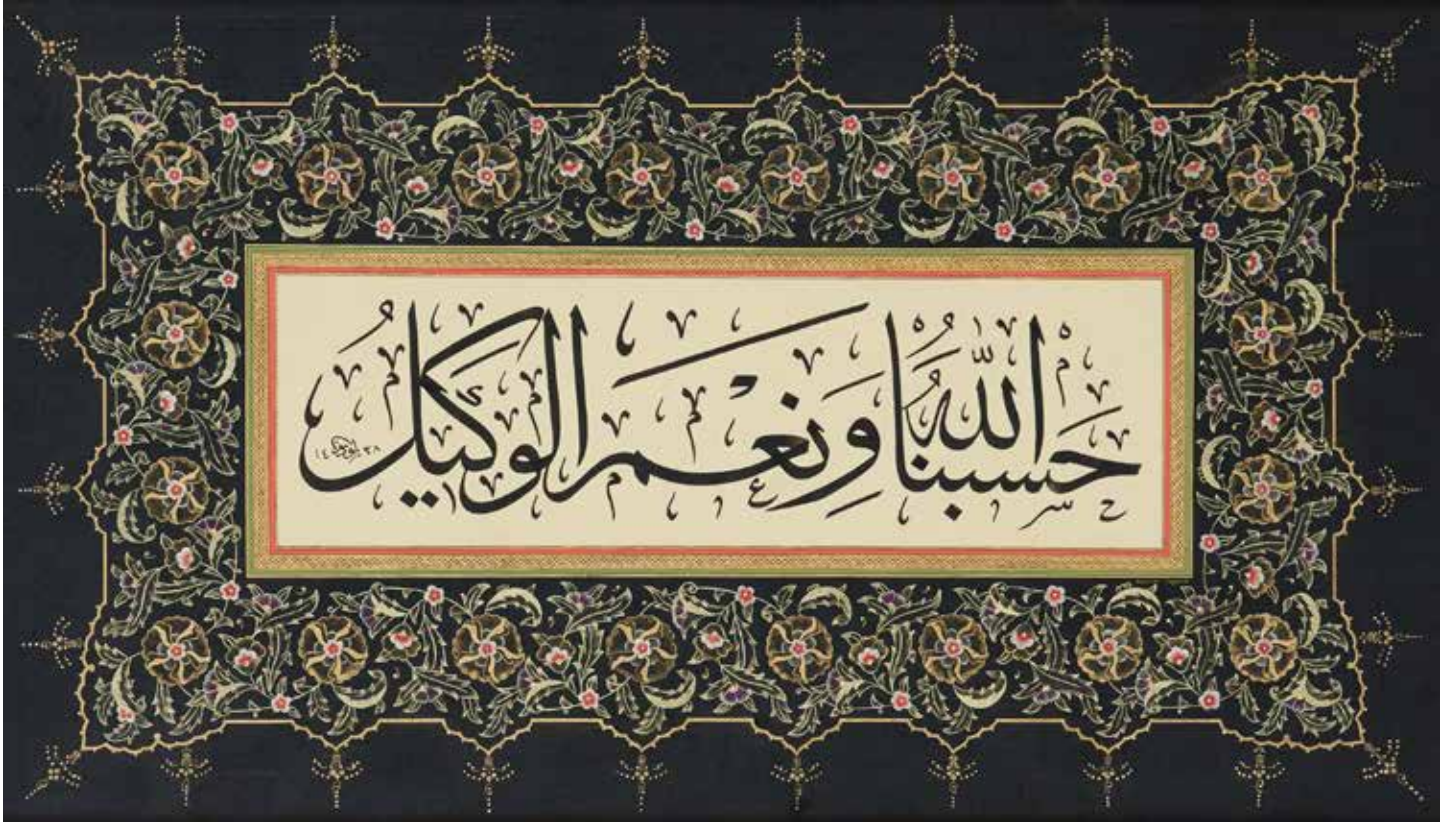 حَسْبُنَا اللّٰهُ وَنِعْمَ الْوَكِيلُ
١٤٣٨